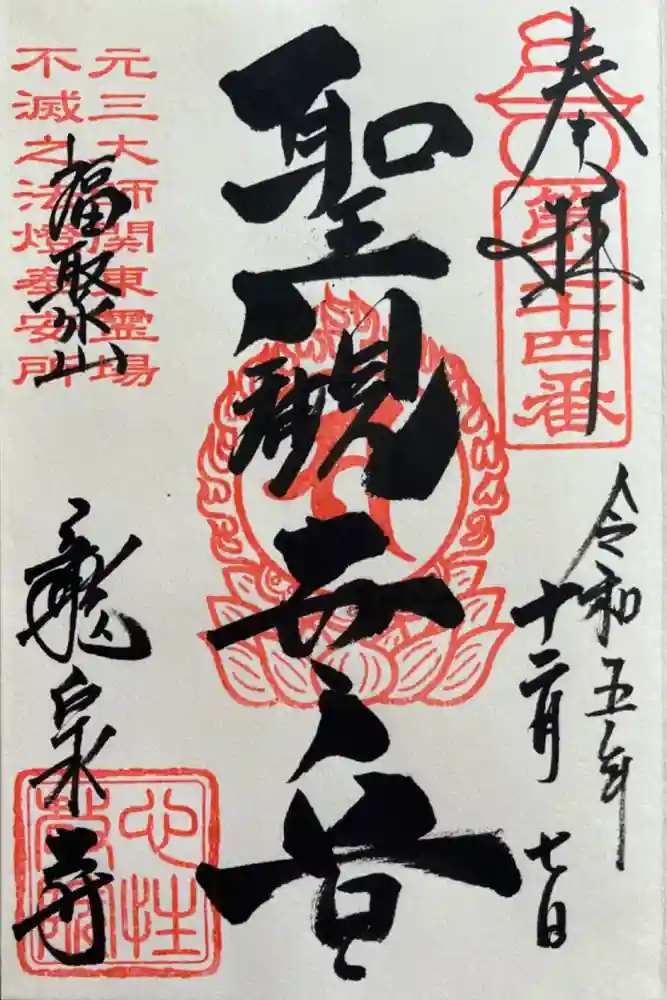 奉拝
令和五年
十二月 七日
聖観世音
元三大師関東霊場
不滅之法燈奉安所
福聚山
龍泉寺
心性